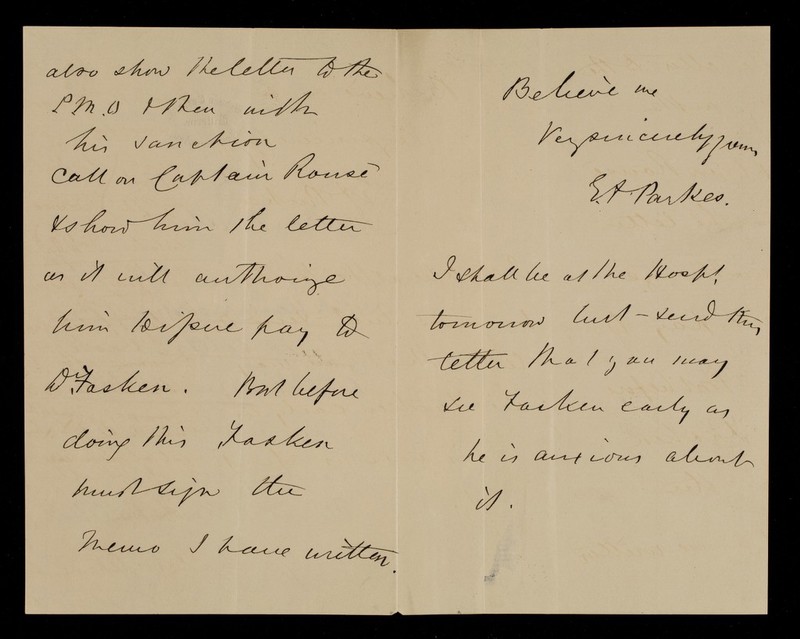 also show the letter to the
P.M.O & then with
his sanction
Call on Captain Rouse
& show him the letter
as it will authorize
him to issue pay to
Dr. Fasken. But before
doing this Fasken
must sign the
Memo I have written.
Believe me
Very sincerely yours
E.A Parkes.
I shall be at the Hospl.
tomorrow but - send this
letter that you may
see Fasken early as
he is anxious about
it.